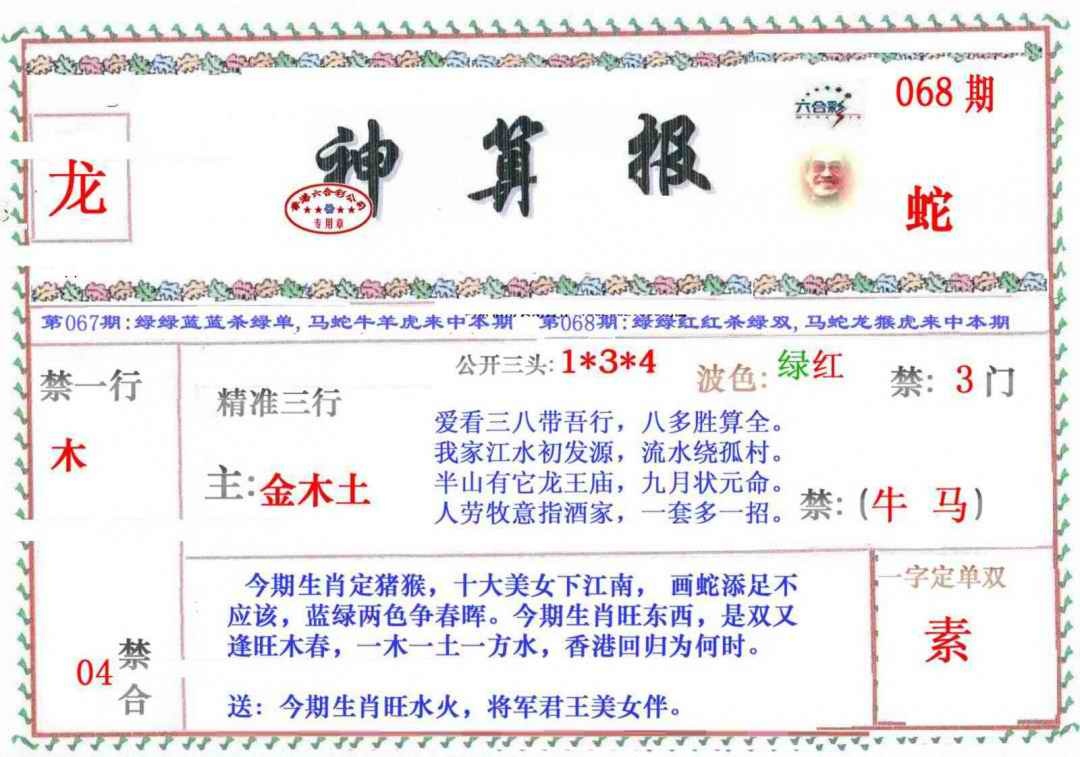 068 期
六合彩
神算报
香港六合彩公司
专用章
龙
蛇
第067期:绿绿蓝蓝杀绿单,马蛇牛羊虎来中本期 第068期:绿绿红红杀绿双,马蛇龙猴虎来中本期
公开三头:1*3*4
波色:绿红
禁:3门
禁一行
木
精准三行
主:金木土
爱看三八带吾行，八多胜算全。
我家江水初发源，流水绕孤村。
半山有它龙王庙，九月状元命。
人劳牧意指酒家，一套多一招。
禁:(牛 马)
今期生肖定猪猴，十大美女下江南， 画蛇添足不
应该，蓝绿两色争春晖。今期生肖旺东西，是双又
逢旺木春，一木一土一方水，香港回归为何时。
送：今期生肖旺水火，将军君王美女伴。
一字定单双
素
04
禁合